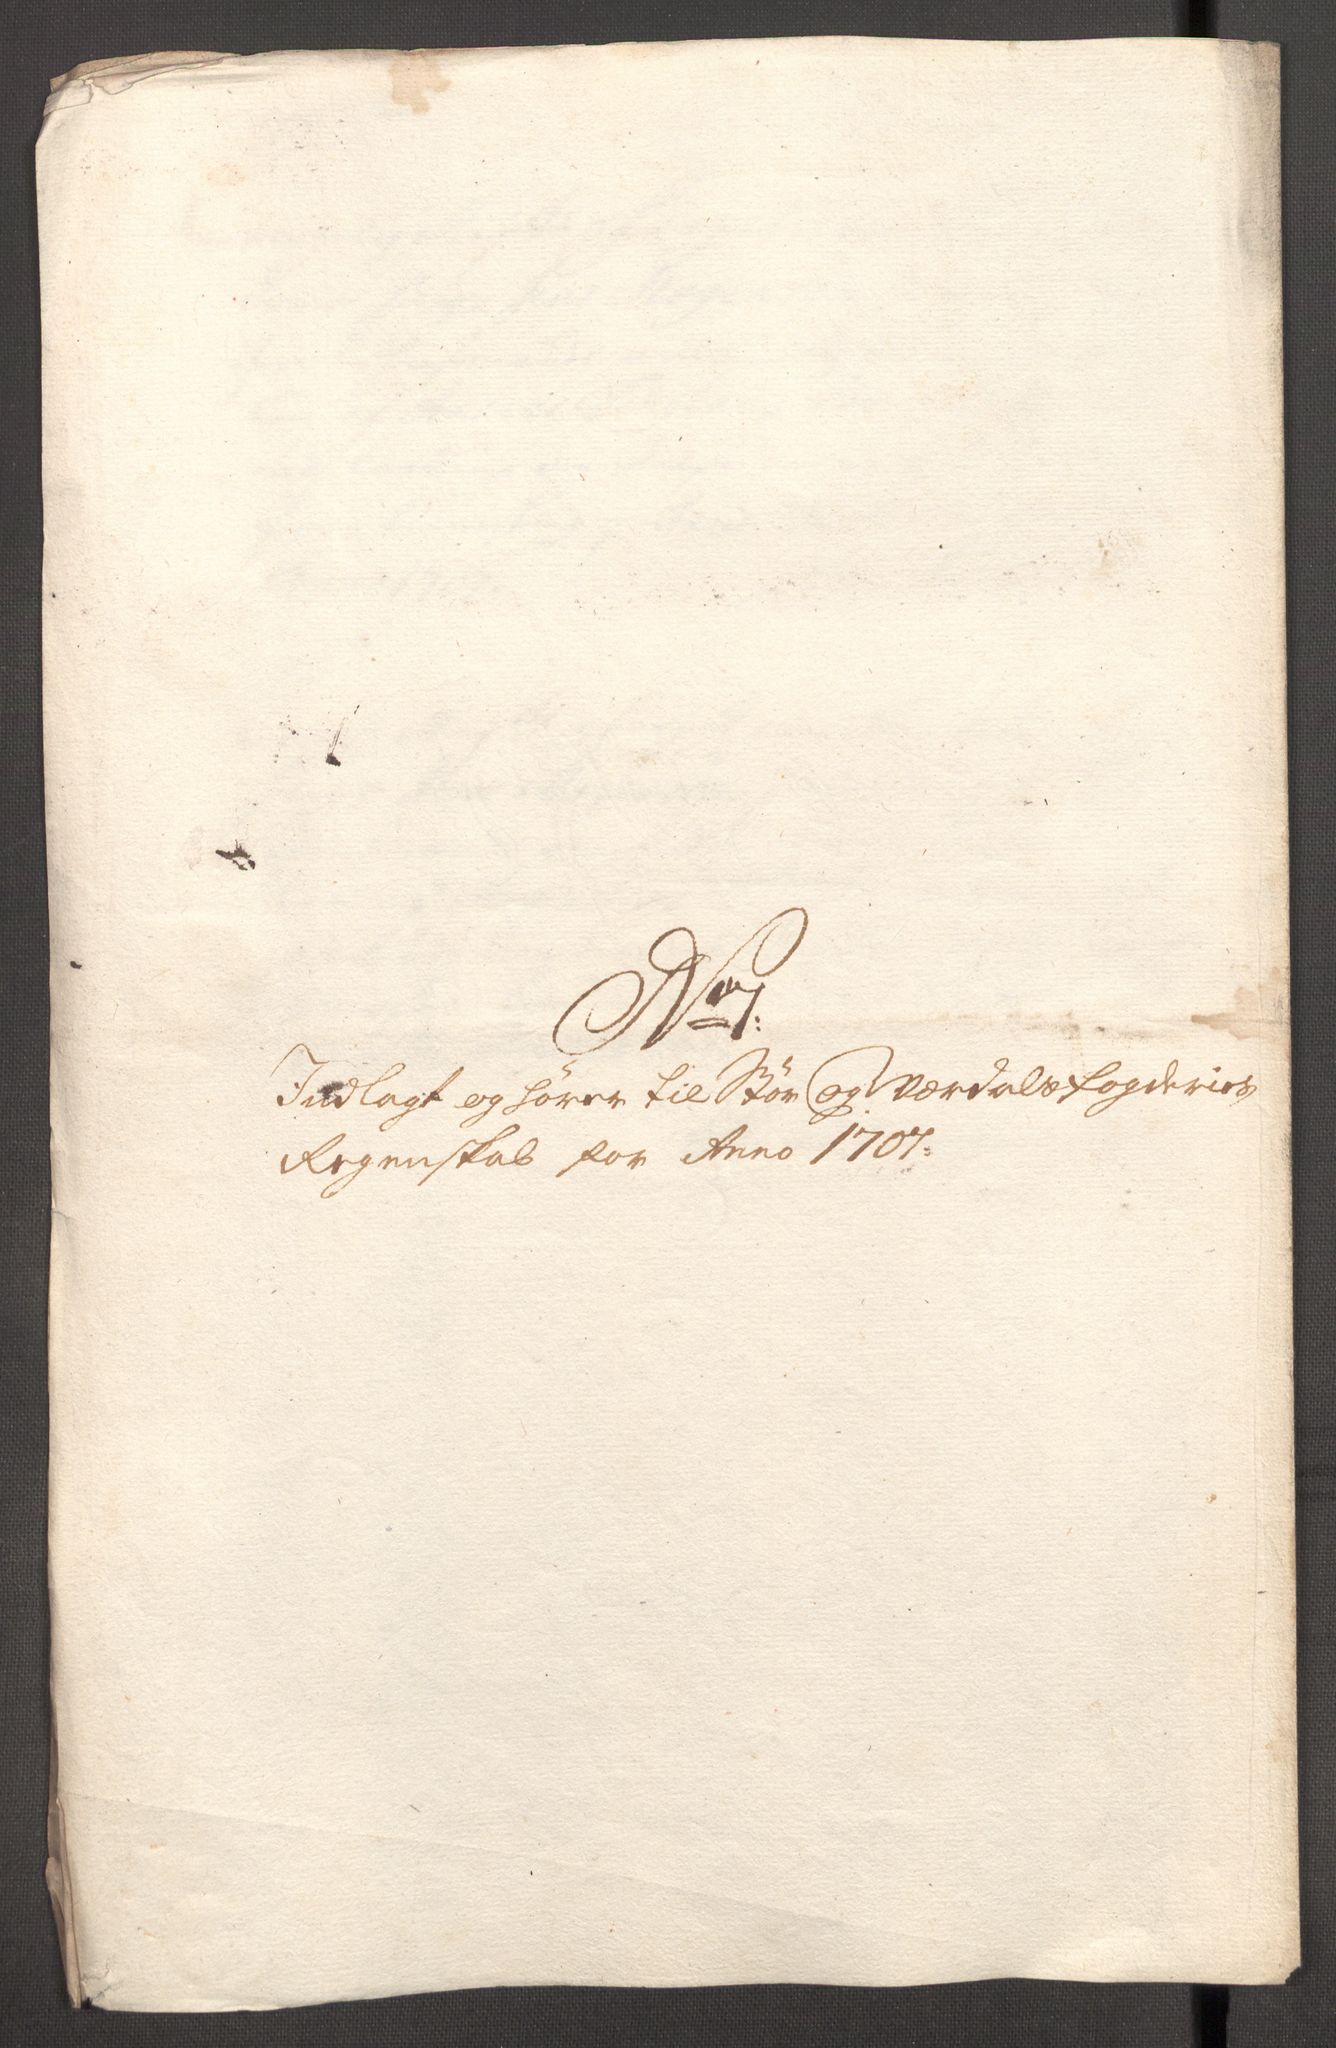 No 7:
Indlagt og hører til Stør og Værdals fogderies
Regenskab for Anno 1707: